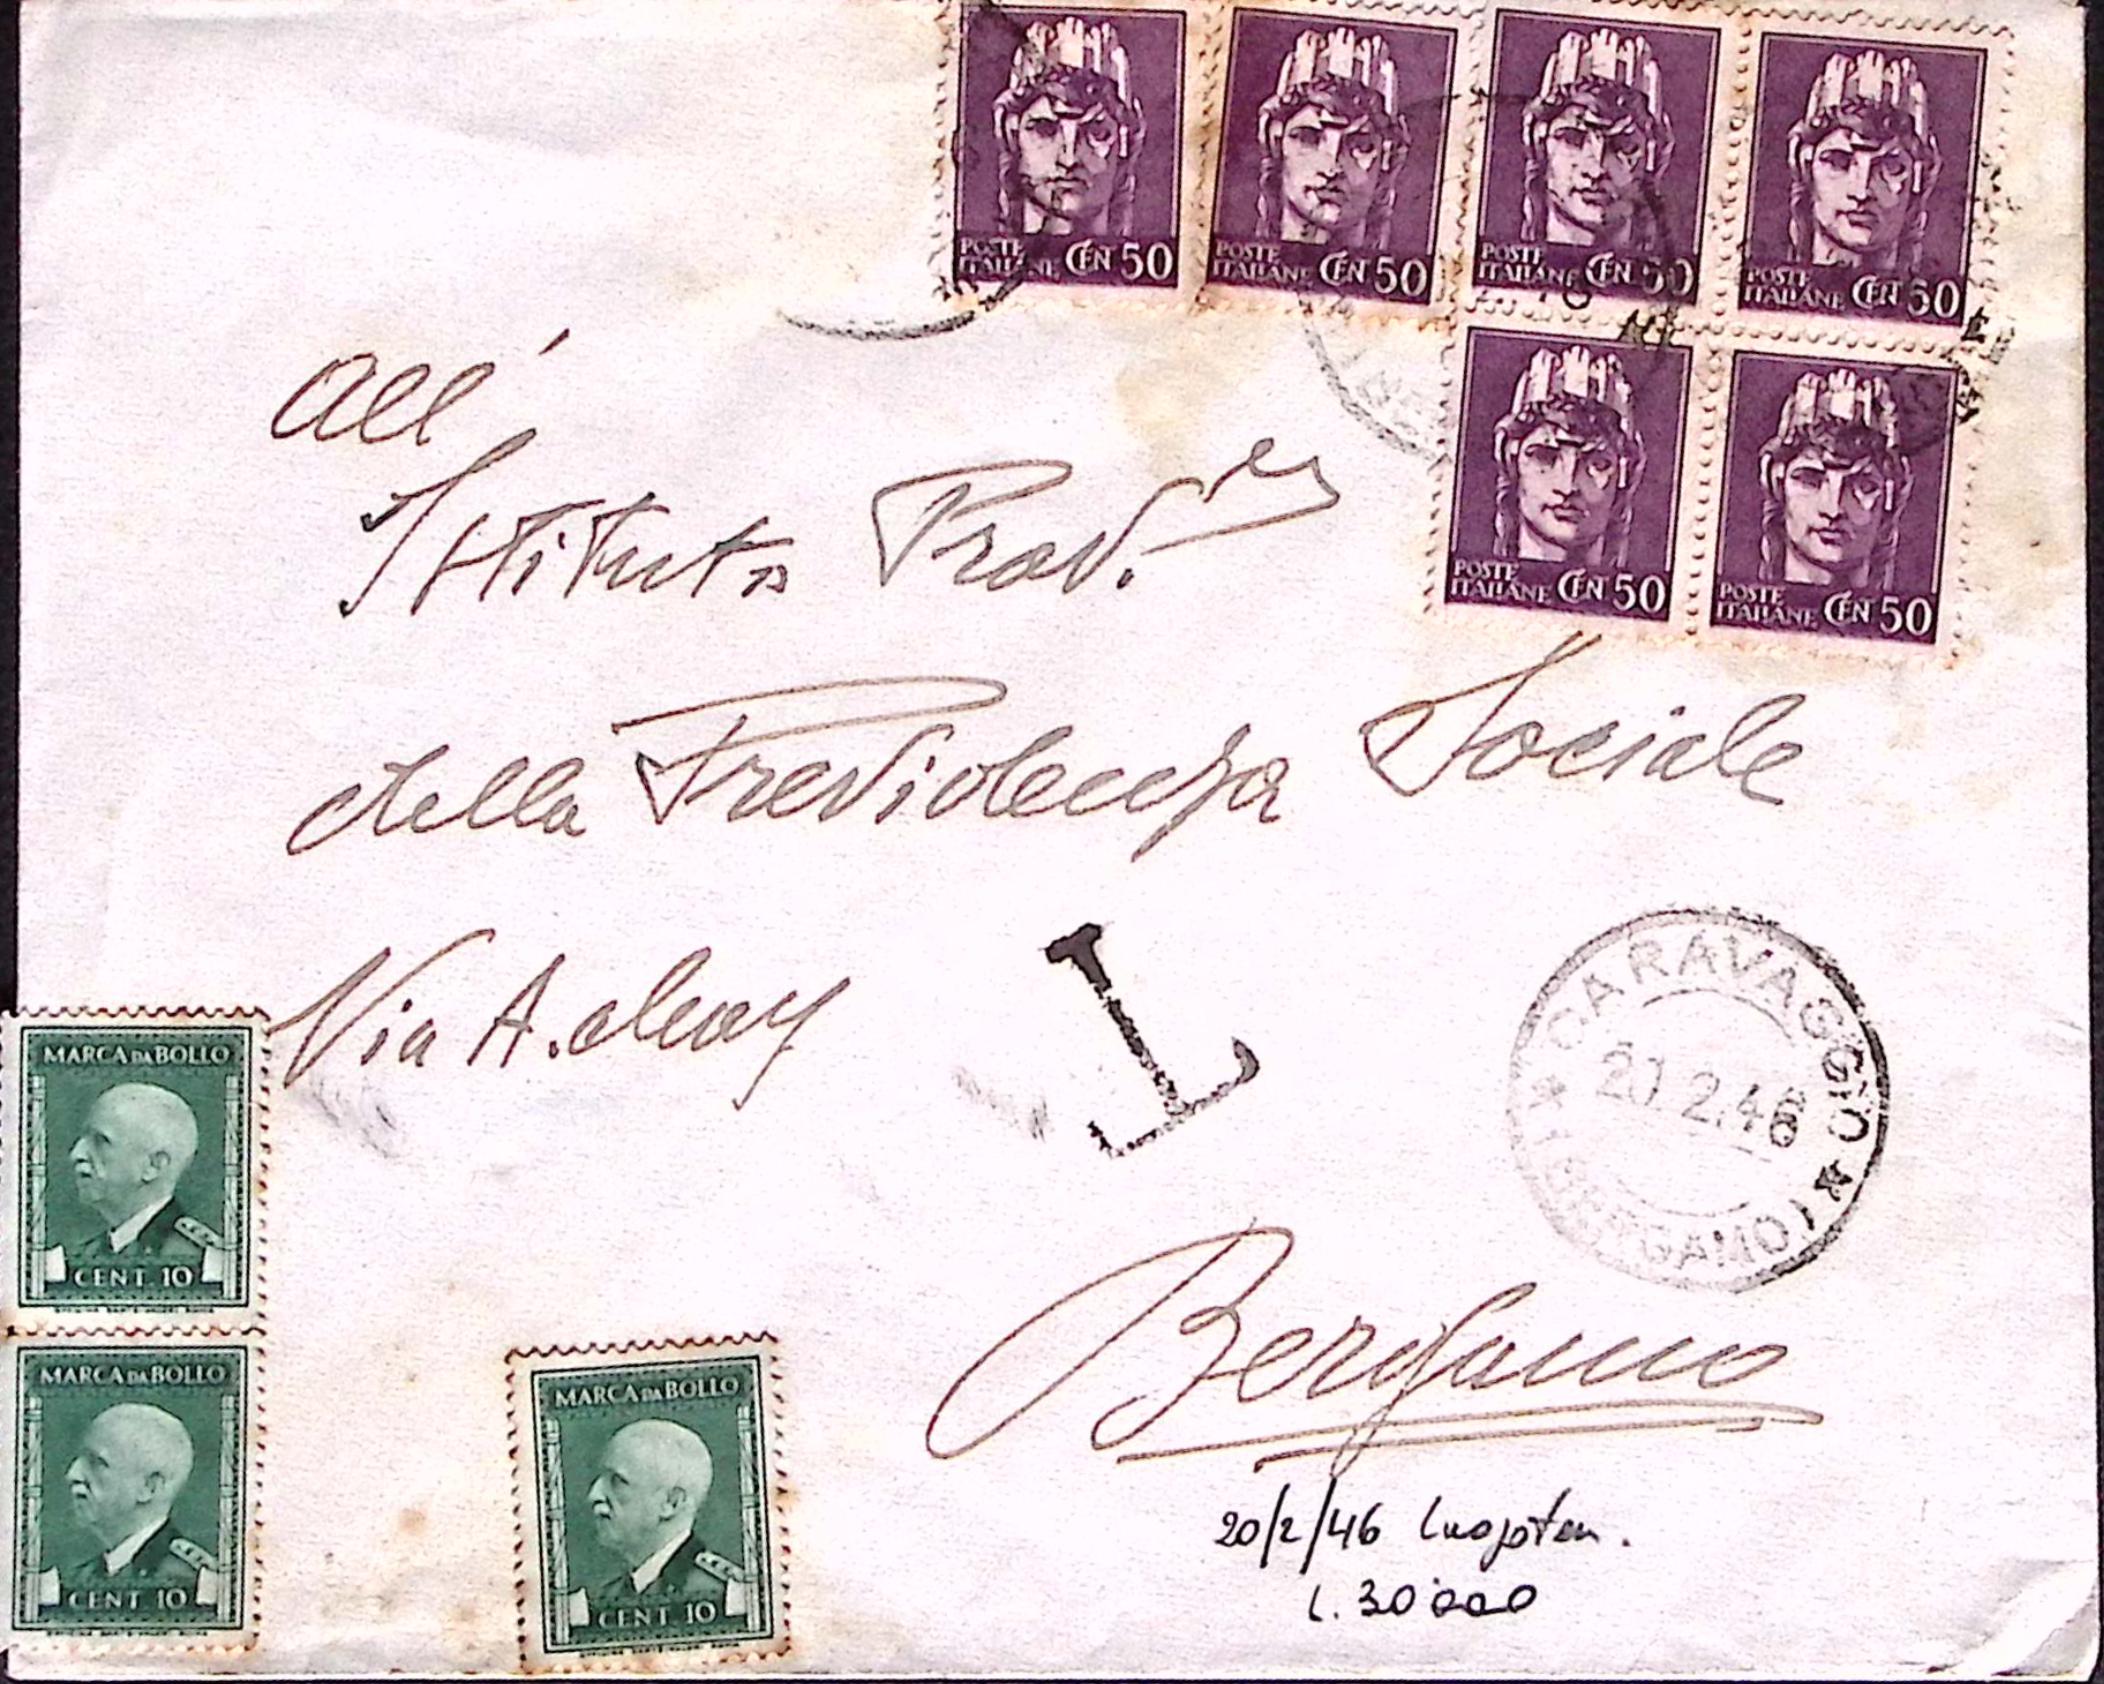 POSTE ITALIANE CEN 50
POSTE ITALIANE CEN 50
POSTE ITALIANE CEN 50
POSTE ITALIANE CEN 50
POSTE ITALIANE CEN 50
POSTE ITALIANE CEN 50
All'
Istituto Prov.
della Previdenza Sociale
Via A.
T
CARAVAGGIO
20.2.46
(BERGAMO)
Bergamo
MARCA DA BOLLO
CENT. 10
MARCA DA BOLLO
CENT. 10
MARCA DA BOLLO
CENT. 10
20/2/46 Luogoten.
L. 30000